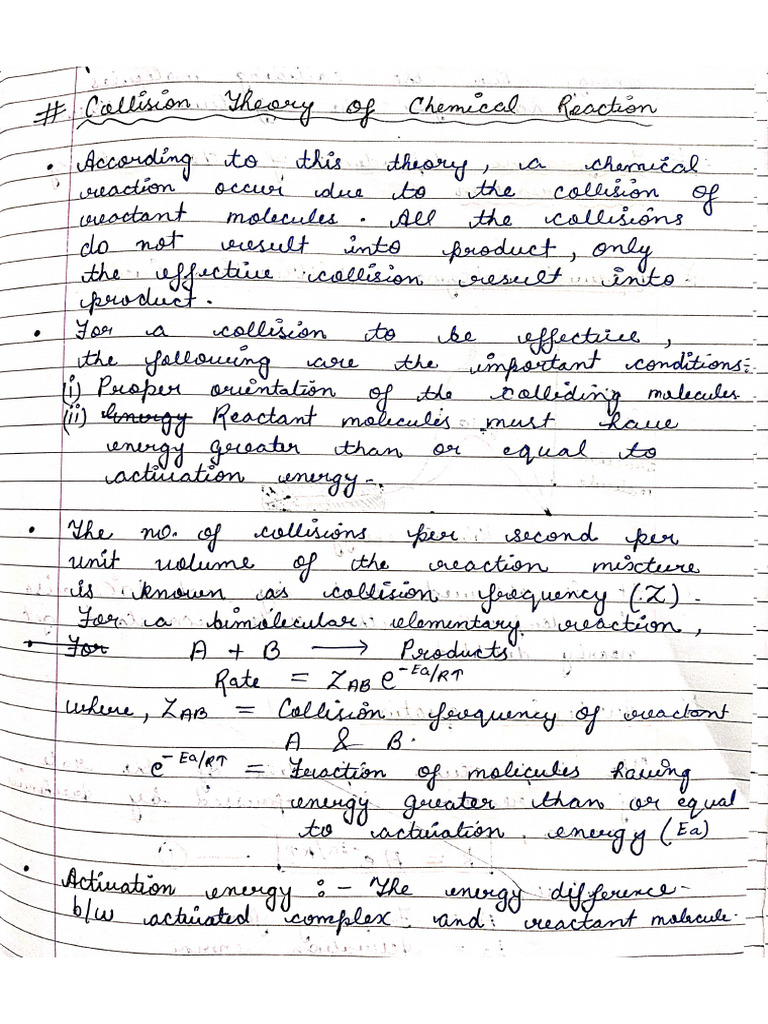 # Collision Theory of Chemical Reaction
• According to this theory, a chemical
reaction occur due to the collision of
reactant molecules. All the collisions
do not result into product, only
the effective collision result into
product.
• For a collision to be effective,
the following are the important conditions:
(i) Proper orientation of the colliding molecules
(ii) Energy Reactant molecules must have
energy greater than or equal to
activation energy.
• The no. of collisions per second per
unit volume of the reaction mixture
is known as collision frequency (Z).
For a bimolecular elementary reaction,
• For A + B ⟶ Products
Rate = Z_AB e^-Ea/RT
where, Z_AB = Collision frequency of reactant
A & B.
e^-Ea/RT = Fraction of molecules having
energy greater than or equal
to activation energy (Ea)
• Activation energy :- The energy difference
b/w activated complex and reactant molecule.